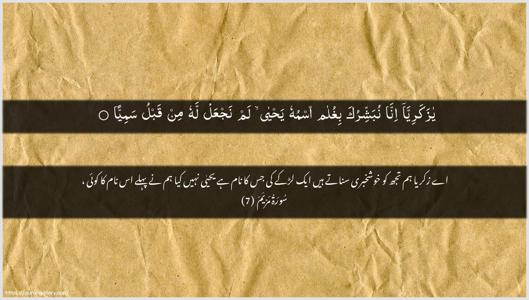 يٰزَكَرِيَّآ اِنَّا نُبَشِّرُكَ بِغُلٰمِ اۨسْمُهٗ يَحْيٰى ۙ لَمْ نَجْعَلْ لَّهٗ مِنْ قَبْلُ سَمِيًّا ○
اے زکریا ہم تجھ کو خوشخبری سناتے ہیں ایک لڑکے کی جس کا نام ہے یحیٰی نہیں کیا ہم نے پہلے اس نام کا کوئی ،
سُورَۃُ مَریَمَ (7)